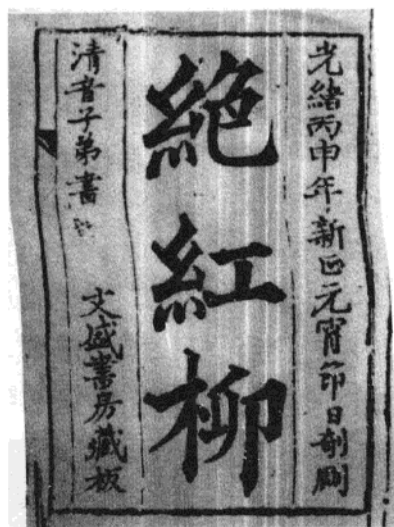 光緒丙申年新正元宵節日剞劂
絕紅柳
清音子弟書
文盛書房藏板